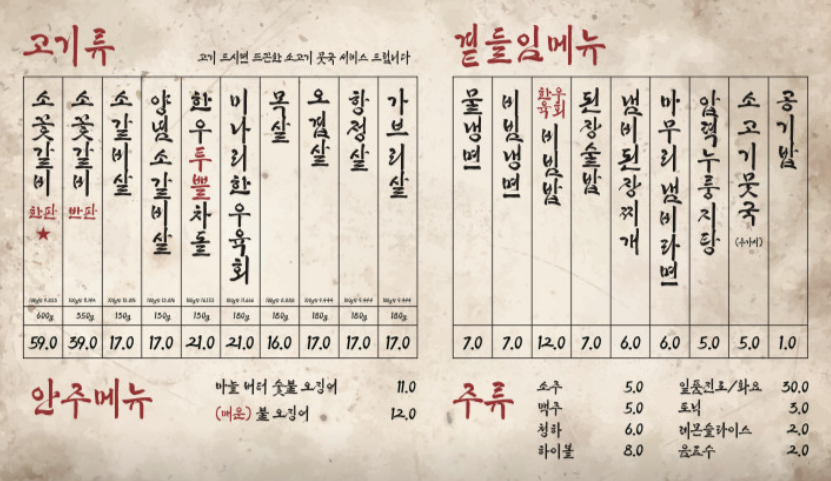 고기류
고기 드시면 뜨끈한 소고기 뭇국 서비스 드립니다
소꽃갈비 한판 ★
소꽃갈비 반판
소갈비살
양념소갈비살
한우투뿔차돌
미나리한우육회
목살
오겹살
항정살
가브리살
600g 350g 150g 150g 150g 180g 180g 180g 180g 180g
59.0 39.0 17.0 17.0 21.0 21.0 16.0 17.0 17.0 17.0
곁들임메뉴
물냉면
비빔냉면
한우육회비빔밥
된장술밥
냄비된장찌개
마무리냄비라면
압력누룽지탕
소고기뭇국 (추가시)
공기밥
7.0 7.0 12.0 7.0 6.0 6.0 5.0 5.0 1.0
안주메뉴
마늘 버터 숯불 오징어 11.0
(매운) 불 오징어 12.0
주류
소주 5.0
맥주 5.0
청하 6.0
하이볼 8.0
일품진로/화요 30.0
토닉 3.0
레몬슬라이스 2.0
음료수 2.0